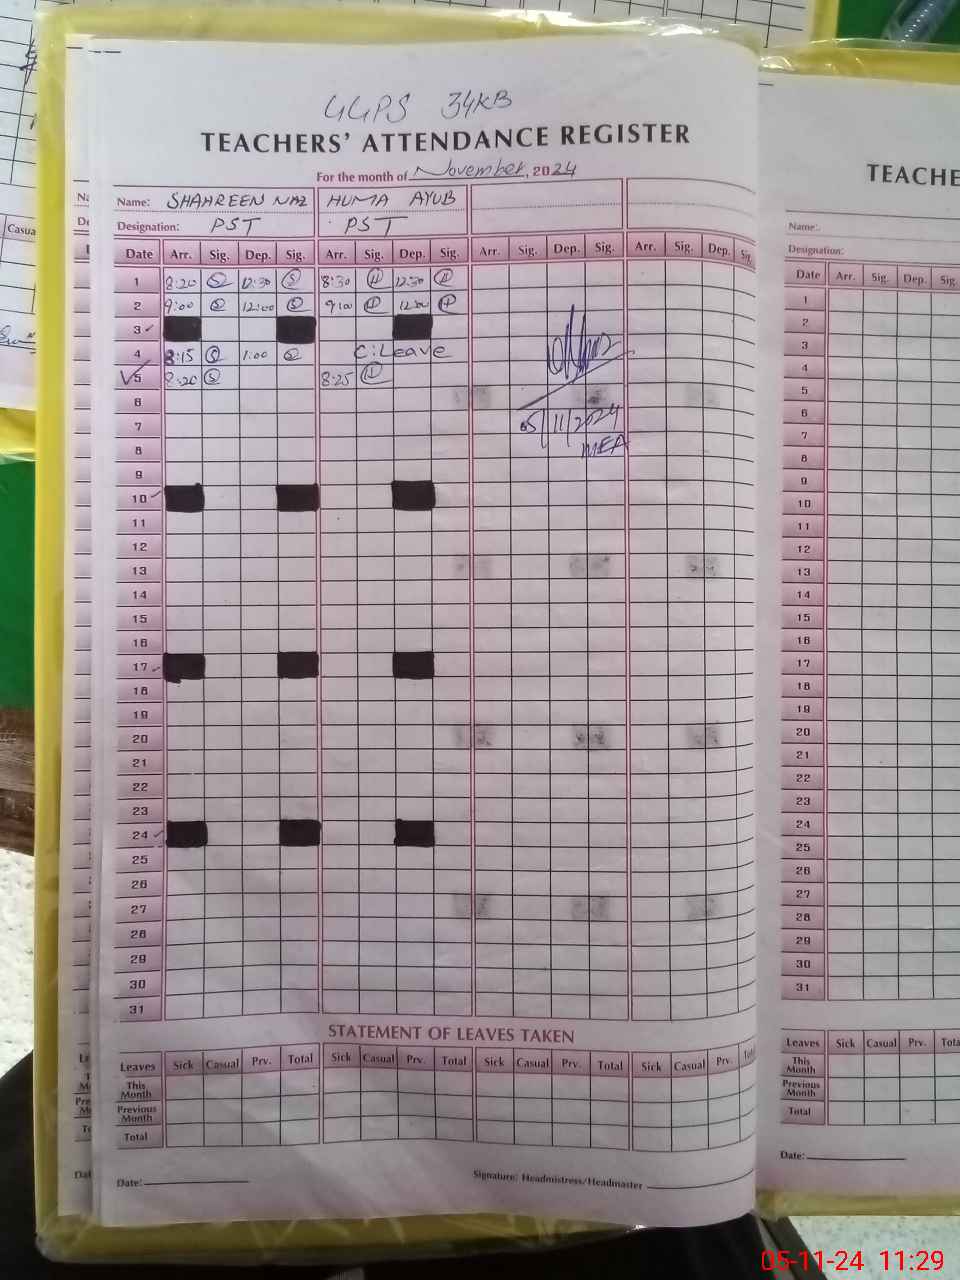 GGPS 34KB
TEACHERS' ATTENDANCE REGISTER
For the month of November, 2024
Name: SHAHREEN NAZ HUMA AYUB
Designation: PST PST
Date Arr. Sig. Dep. Sig. Arr. Sig. Dep. Sig. Arr. Sig. Dep. Sig. Arr. Sig. Dep. Sig.
1 8:20 S 12:30 S 8:30 H 12:30 H
2 9:00 S 12:00 S 9:00 H 12:00 H
3
4 8:15 S 1:00 S C:Leave
5 8:20 S 8:25 H
6
05/11/2024
7
MEA
8
9
10
11
12
13
14
15
16
17
18
19
20
21
22
23
24
25
26
27
28
29
30
31
STATEMENT OF LEAVES TAKEN
Leaves Sick Casual Prv. Total Sick Casual Prv. Total Sick Casual Prv. Total Sick Casual Prv.
This Month
Previous Month
Total
Date:
Signature: Headmistress/Headmaster
TEACHE
Name:
Designation:
Date Arr. Sig. Dep. Sig
1
2
3
4
5
6
7
8
9
10
11
12
13
14
15
16
17
18
19
20
21
22
23
24
25
26
27
28
29
30
31
Leaves Sick Casual Prv. Tota
This Month
Previous Month
Total
Date:
Casua
05-11-24 11:29